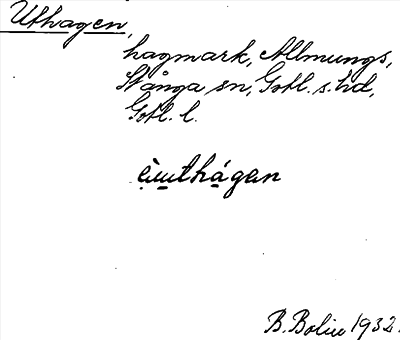 Uthagen,
hagmark, Allmungs,
Stånga sn, Gotl. s. hd,
Gotl. l.
èu̠thá̠gen
B. Bolin 1932.